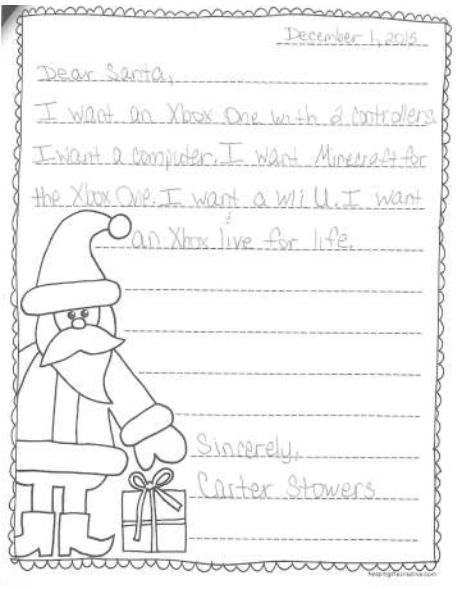 December 1, 2015
Dear Santa,
I want an Xbox One with 2 controllers.
I want a computer. I want Minecraft for
the Xbox One. I want a Wii U. I want
an Xbox live for life.
Sincerely,
Carter Stowers